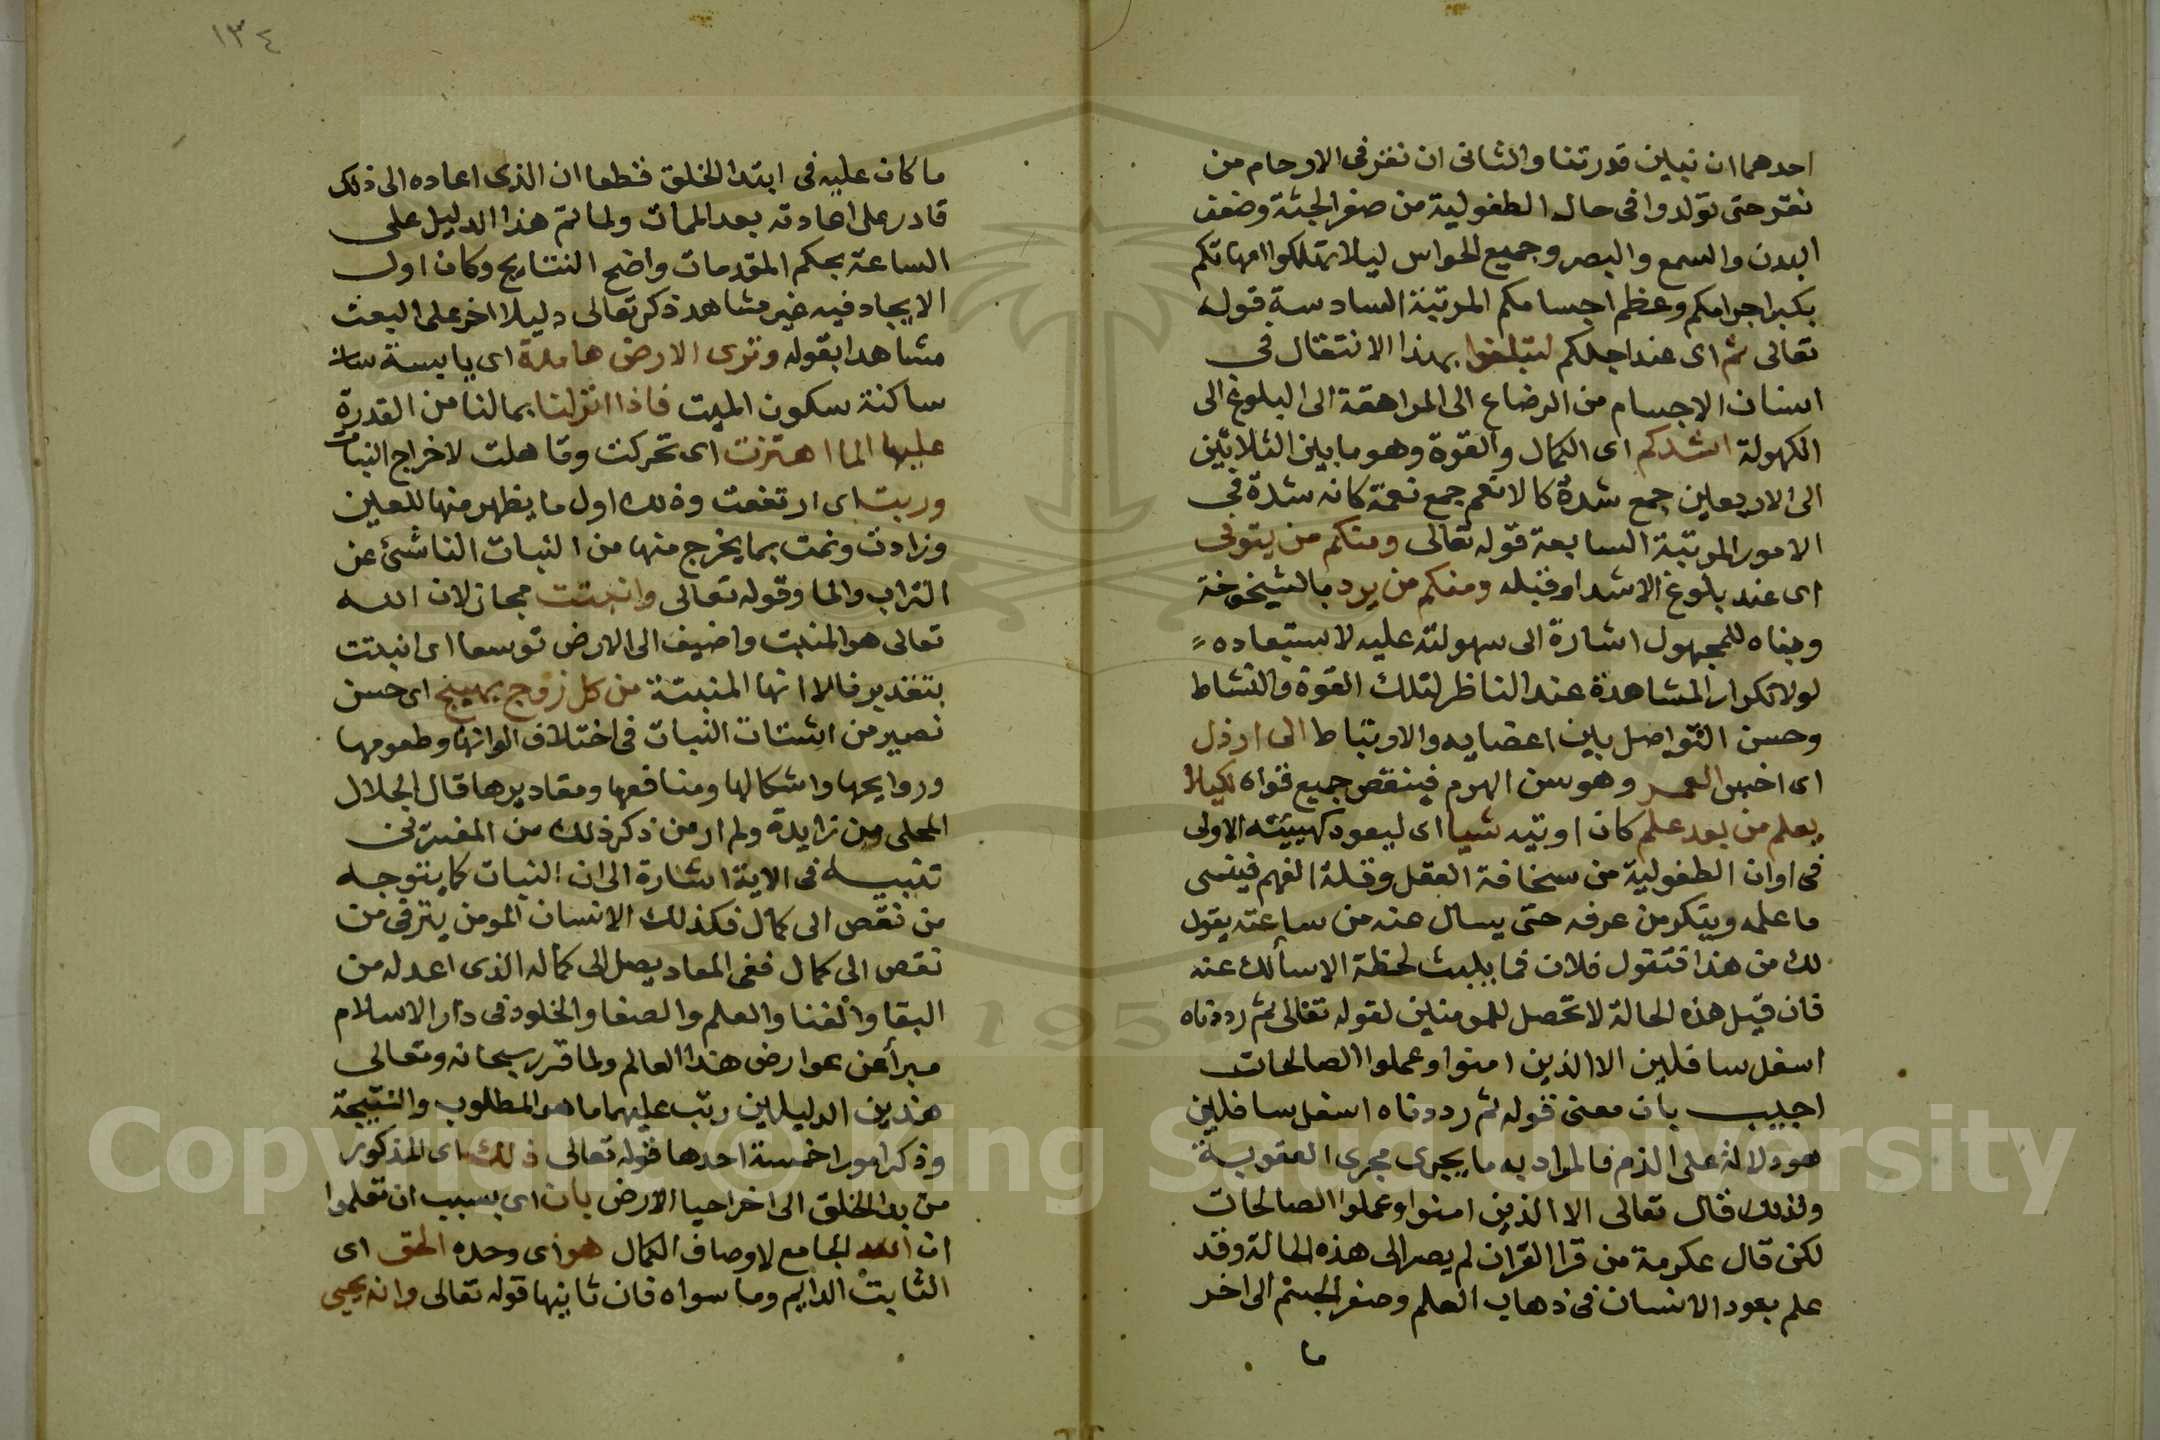 احدهما ان نبلين قدرتنا والثانى ان نقر فى الارحام من
نقر حتى تولدوا فى حال الطفولية من صغر الجثة وضعف
البدن والسمع والبصر وجميع الحواس ليلا تهتلكوا امهاتكم
بكبر اجرامكم وعظم اجسامكم المرتبة السادسة قوله
تعالى ثم اى عند اجلكم لتبلغوا بهذا الانتقال فى
اسنان الاجسام من الرضاع الى المراهقة الى البلوغ الى
الكهولة اشدكم اى الكمال والقوة وهو ما بين الثلاثين
الى الاربعين جمع شدة كالانعم جمع نعمة كانه شدة فى
الامور المرتبة السابعة قوله تعالى ومنكم من يتوفى
اى عند بلوغ الاشد او قبله ومنكم من يرد بالشيخوخة
وبناه للمجهول اشارة الى سهولته عليه لاستبعاده
لولا تكرار المشاهدة عند الناظر لتلك القوة والنشاط
وحسن التواصل بين اعضايه والارتباط الى ارذل
اى اخس العمر وهو سن الهرم فينقص جميع قواه لكيلا
يعلم من بعد علم كان اوتيه شيا اى ليعود كهيئته الاولى
فى اوان الطفولية من سخافة العقل وقلة الفهم فينسى
ما علمه وينكر من عرفه حتى يسال عنه من ساعته يقول
لك من هذا فتقول فلان فما يلبث لحظة الا سألك عنه
فان قيل هذه الحالة لا تحصل للمومنين لقوله تعالى ثم رددناه
اسفل سافلين الا الذين امنوا وعملوا الصالحات
اجيب بان معنى قوله ثم رددناه اسفل سافلين
هو دلالة على الذم فالمراد به ما يجرى مجرى العقوبة
ولذلك قال تعالى الا الذين امنوا وعملوا الصالحات
لكن قال عكرمة من قرا القران لم يصر الى هذه الحالة وقد
علم بعود الانسان فى ذهاب العلم وصغر الجسم الى اخر
ما
١٣٤
ما كان عليه فى ابتدا الخلق قطعا ان الذى اعاده الى ذلك
قادر على اعادته بعد الممات ولما تم هذا الدليل على
الساعة بحكم المقدمات واضح النتاريج وكان اول
الايجاد فيه غير مشاهد ذكر تعالى دليلا اخر على البعث
مشاهدا بقوله وترى الارض هامدة اى يابسة
ساكنة سكون الميت فاذا انزلنا بمالنا من القدرة
عليها الما اهتزت اى تحركت وتاهلت لاخراج النبات
وربت اى ارتفعت وذلك اول ما يظهر منها للعين
وزادت ونمت بما يخرج منها من النبات الناشئ عن
التراب والما وقوله تعالى وانبتت مجاز لان الله
تعالى هو المنبت واضيف الى الارض توسعا اى انبتت
بتقديرنا لا انها المنبتة من كل زوج بهيج اى حسن
نصير من اشتات النبات فى اختلاف الوانها وطعومها
وروايحها واشكالها ومنافعها ومقاديرها قال الجلال
المحلى ومن زايدة ولم ار من ذكر ذلك من المفسرين
تنبيه فى الاية اشارة الى ان النبات كما يتوجه
من نقص الى كمال فكذلك الانسان المومن يترقى من
نقص الى كمال ففى المعاد يصل الى كماله الذى اعد له من
البقا والغنا والعلم والصفا والخلود فى دار الاسلام
مبرأ عن عوارض هذا العالم ولما قرر سبحانه وتعالى
هذين الدليلين رتب عليهما ما هو المطلوب والنتيجة
وذكر امورا خمسة احدها قوله تعالى ذلك اى المذكور
من بدا الخلق الى اخر احيا الارض بان اى بسبب ان تعلموا
ان الله الجامع لاوصاف الكمال هو اى وحده الحق اى
الثابت الدايم وما سواه فان ثانيها قوله تعالى وانه يحيى
Copyright © King Saud University
195